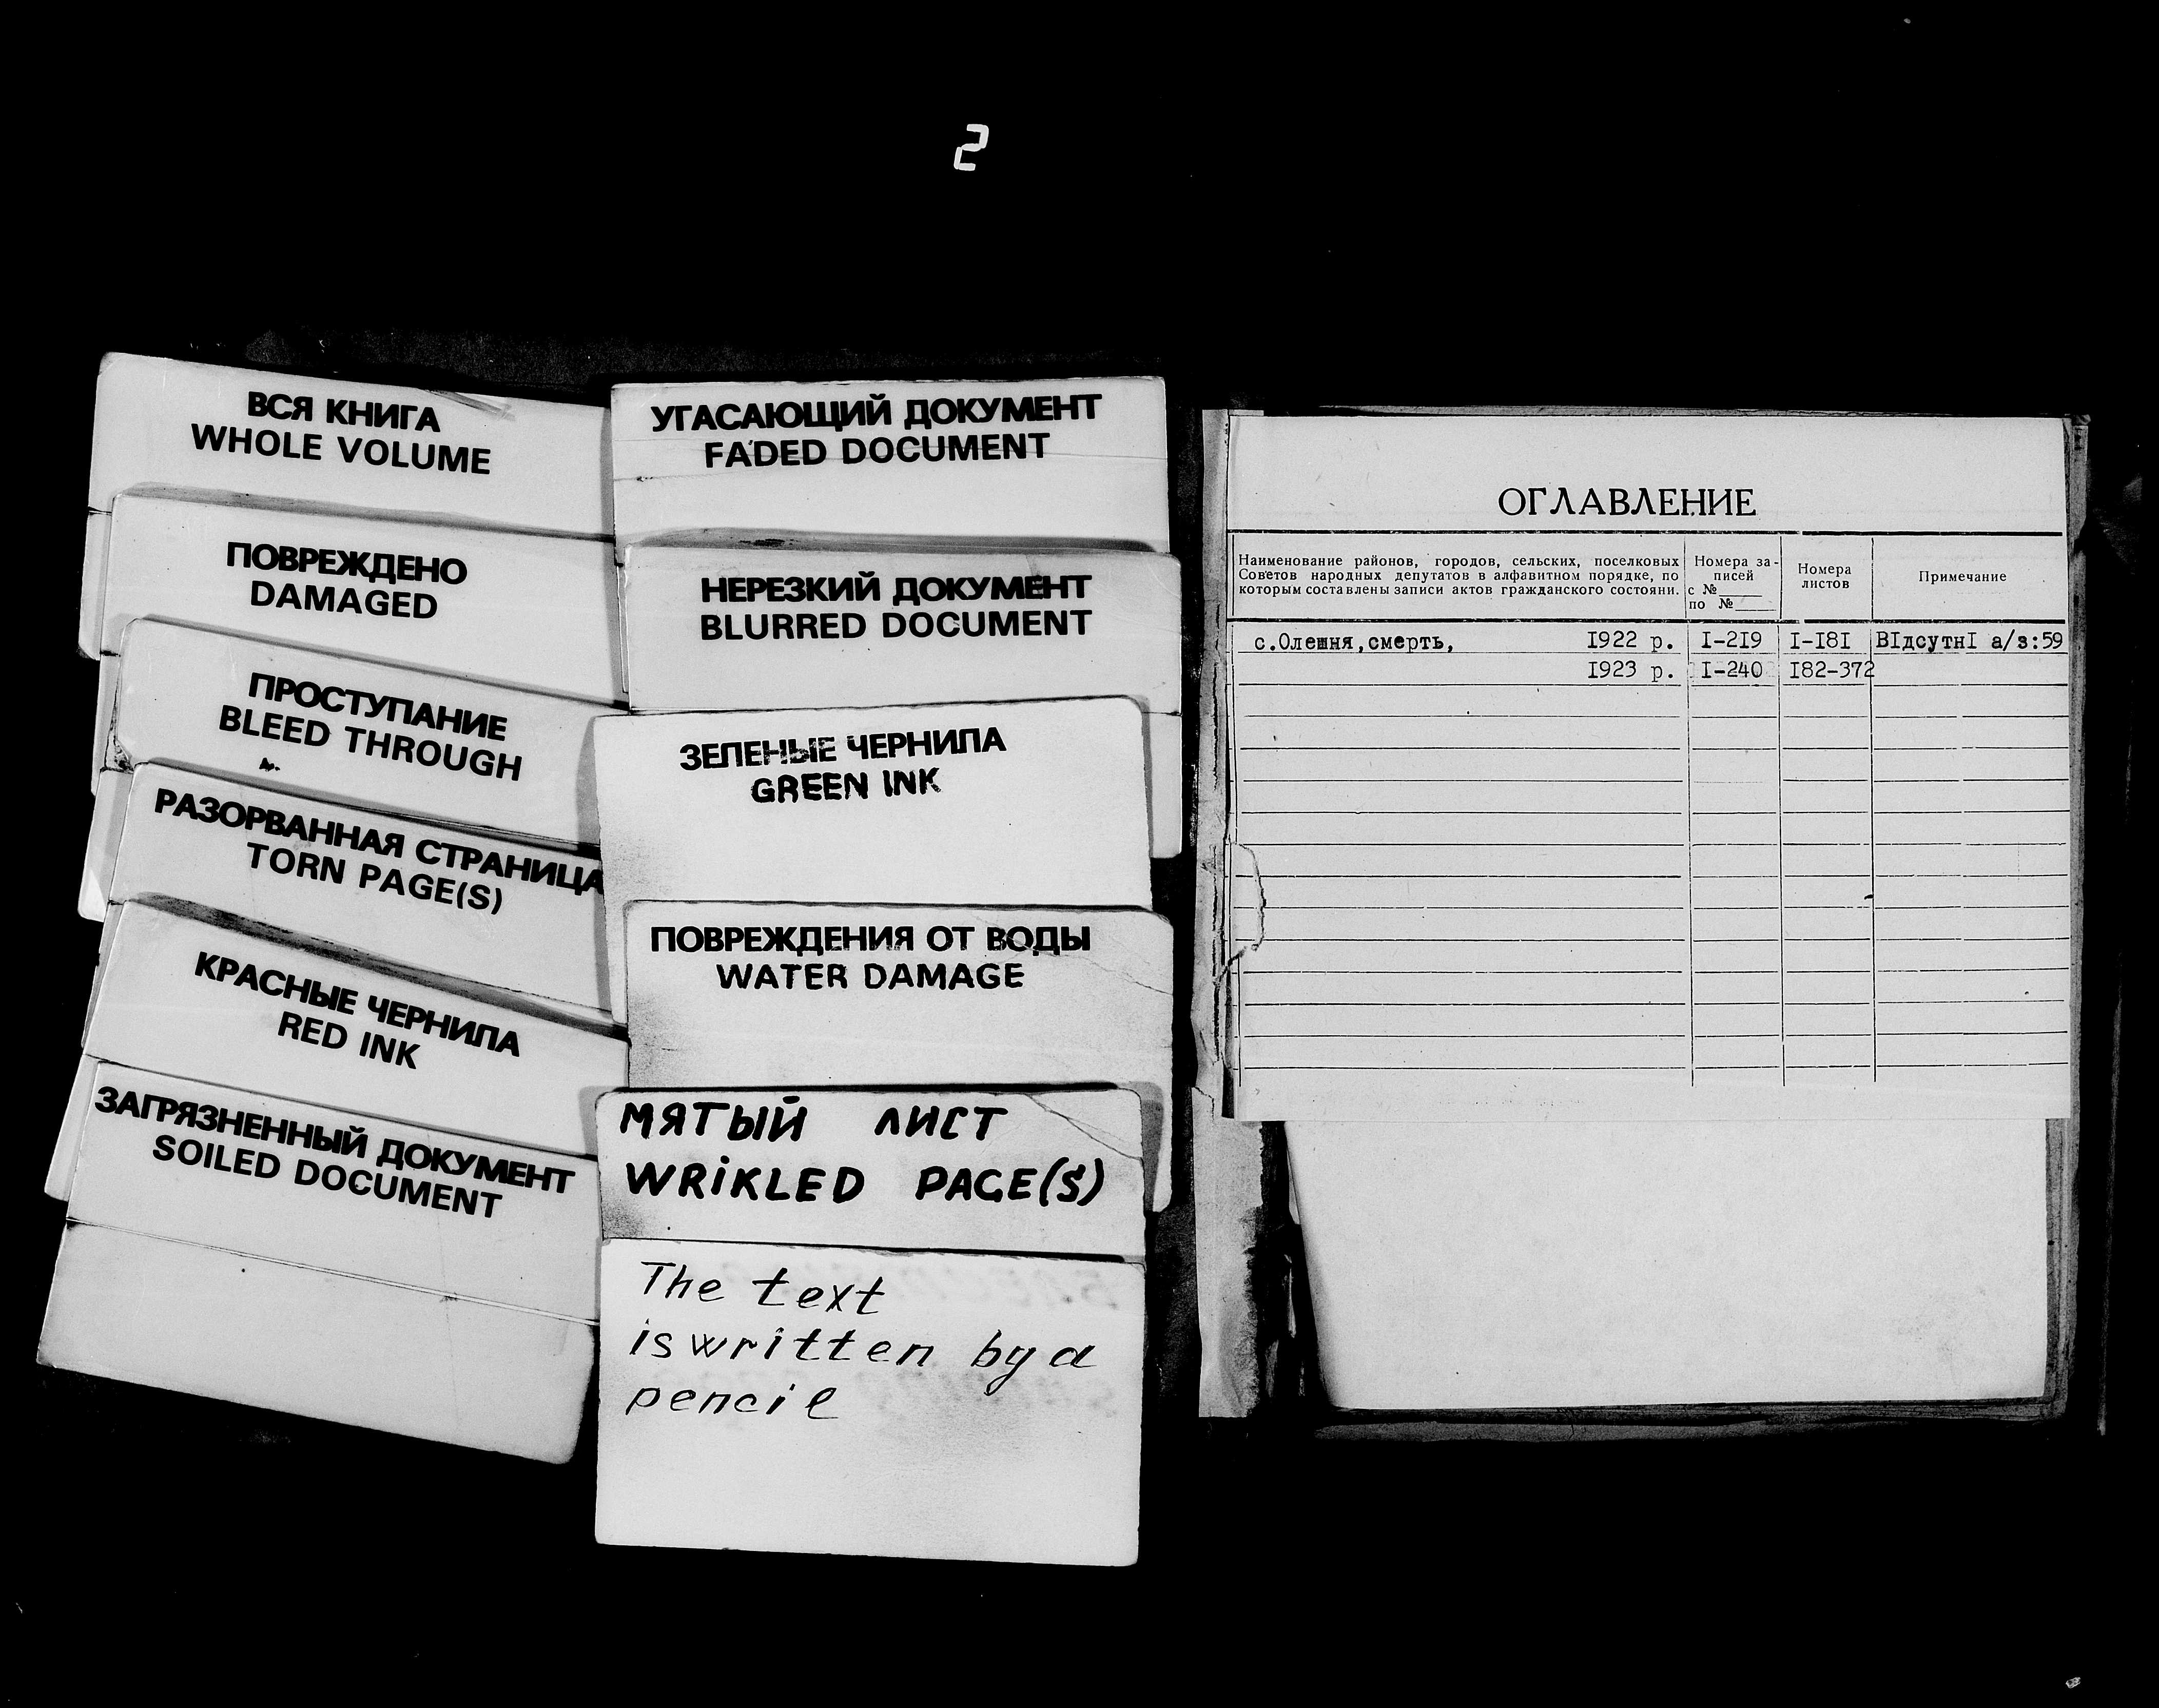 2
ВСЯ КНИГА
WHOLE VOLUME
ПОВРЕЖДЕНО
DAMAGED
ПРОСТУПАНИЕ
BLEED THROUGH
РАЗОРВАННАЯ СТРАНИЦА
TORN PAGE(S)
КРАСНЫЕ ЧЕРНИЛА
RED INK
ЗАГРЯЗНЕННЫЙ ДОКУМЕНТ
SOILED DOCUMENT
УГАСАЮЩИЙ ДОКУМЕНТ
FADED DOCUMENT
НЕРЕЗКИЙ ДОКУМЕНТ
BLURRED DOCUMENT
ЗЕЛЕНЫЕ ЧЕРНИЛА
GREEN INK
ПОВРЕЖДЕНИЯ ОТ ВОДЫ
WATER DAMAGE
МЯТЫЙ ЛИСТ
WRiKLED PAGE(S)
The text
is written by a
pencil
ОГЛАВЛЕНИЕ
Наименование районов, городов, сельских, поселковых
Советов народных депутатов в алфавитном порядке, по
которым составлены записи актов гражданского состояни.
Номера за-
писей
с №____
по №____
Номера
листов
Примечание
с.Олешня,смерть, I922 р. I-2I9 I-I8I ВIдсутнI а/з:59
I923 р. I-240 I82-372